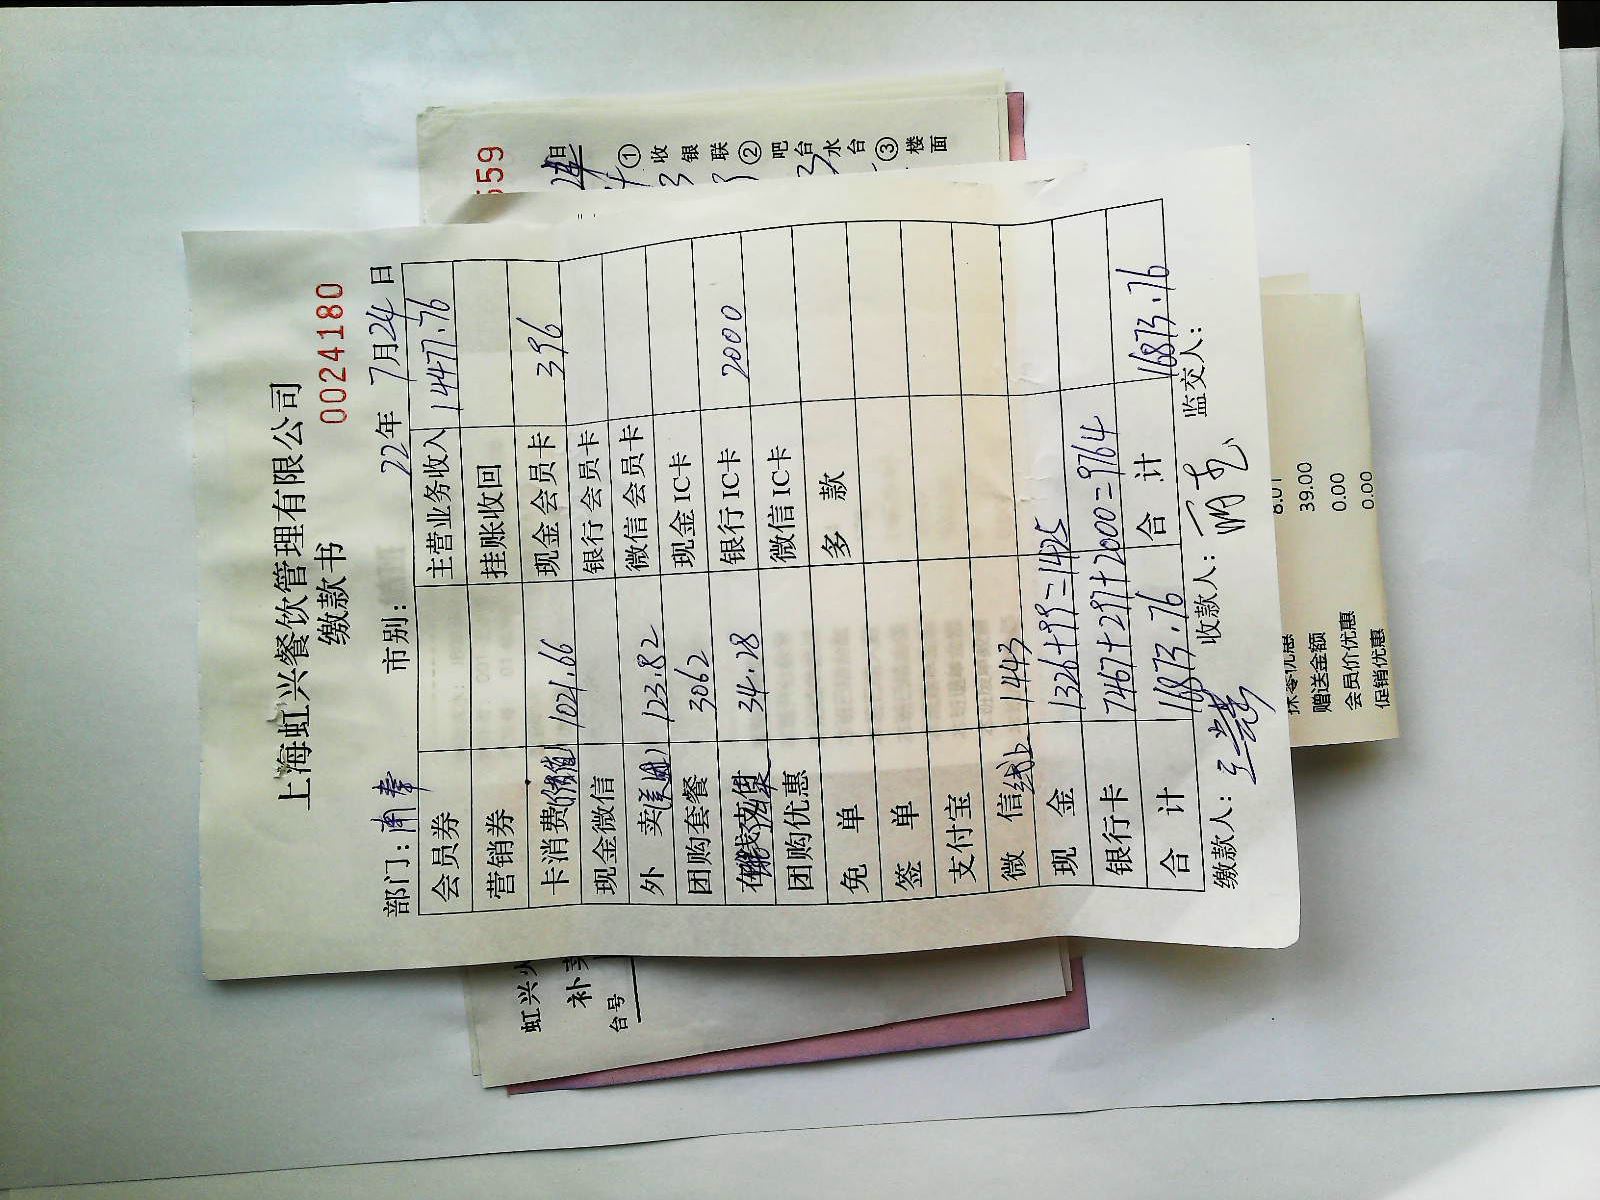 上海虹兴餐饮管理有限公司
缴款书 0024180
部门: 南奉 市别: 22年 7月24日
会员券 主营业务收入 14477.76
营销券 挂账收回
卡消费(储值) 1021.66 现金会员卡 396
现金微信 银行会员卡
外 卖(美团) 123.82 微信会员卡
团购套餐 3062 现金IC卡
34.28 银行IC卡 2000
团购优惠 微信IC卡
免 单 多 款
签 单
支付宝
微 信 线上 1443
现 金 1326+99=1425
银行卡 7467+297+2000=9764
合 计 16873.76 合 计 16873.76
缴款人: 收款人: 监交人:
559
24日
① 收 银 联 ② 吧 台 水 台 ③ 楼 面
虹兴火
补菜
台号
8.01
抹零优惠
赠送金额 39.00
会员价优惠 0.00
促销优惠 0.00